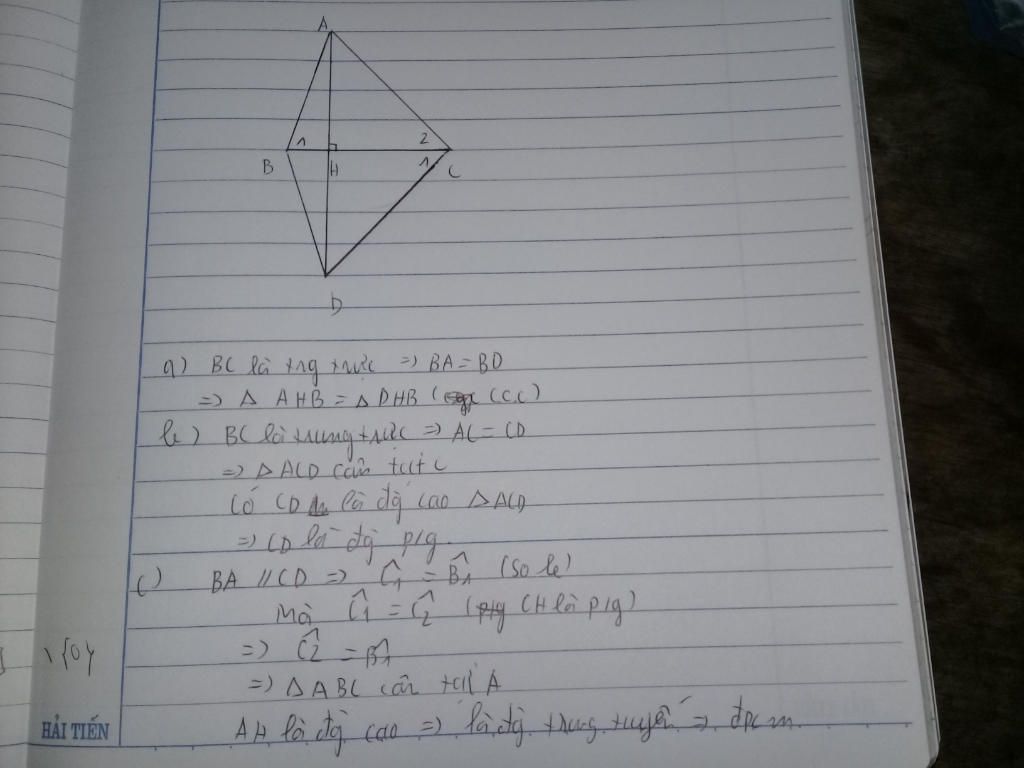 A
1
2
B
H
1
C
D
a) BC là trg trực => BA = BD
=> Δ AHB = Δ DHB ( c.c.c)
b) BC là trung trực => AC = CD
=> Δ ACD cân tại C
Có CD là đg cao Δ ACD
=> CD là đg p/g.
c) BA // CD => Ĉ1 = B̂1 (So le)
Mà Ĉ1 = Ĉ2 ( CH là p/g)
=> Ĉ2 = B̂1
=> Δ ABC cân tại A
\{0}
HẢI TIẾN
AH là đg cao => là đg trung tuyến => đpcm